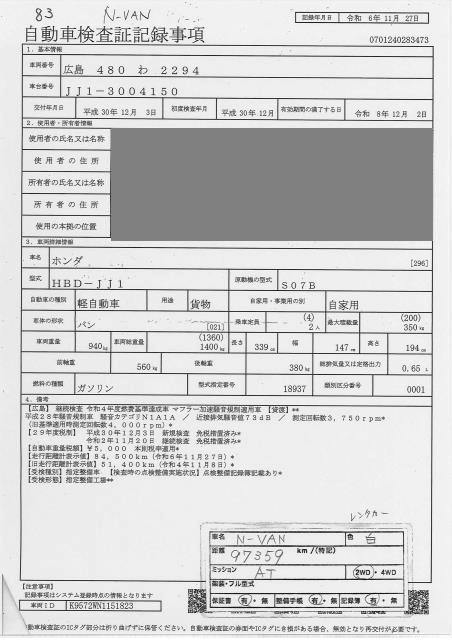 83 N-VAN
記録年月日 令和 6年11月 27日
自動車検査証記録事項
0701240283473
1. 基本情報
車両番号 広島 480 わ 2294
車台番号 JJ1-3004150
交付年月日 平成 30年12月 3日 初度検査年月 平成 30年12月 有効期間の満了する日 令和 8年12月 2日
2. 使用者・所有者情報
使用者の氏名又は名称
使用者の住所
所有者の氏名又は名称
所有者の住所
使用の本拠の位置
3. 車両詳細情報
車名 ホンダ [296]
型式 HBD-JJ1 原動機の型式 S07B
自動車の種別 軽自動車 用途 貨物 自家用・事業用の別 自家用
車体の形状 バン [021] 乗車定員 (4) 2人 最大積載量 (200) 350kg
車両重量 940kg 車両総重量 (1360) 1400kg 長さ 339cm 幅 147cm 高さ 194cm
前軸重 560kg 後軸重 380kg 総排気量又は定格出力 0.65 L
燃料の種類 ガソリン 型式指定番号 18937 類別区分番号 0001
4. 備考
【広島】 継続検査 令和4年度燃費基準達成車 マフラー加速騒音規制適用車 【貨渡】**
平成28年騒音規制車 騒音カテゴリN1A1A / 近接排気騒音値73dB / 測定回転数3,750rpm*
(旧基準適用時測定回転数4,000rpm)*
【29年度税制】 平成30年12月3日 新規検査 免税措置済み*
令和2年11月20日 継続検査 免税措置済み*
【自動車重量税額】¥5,000 本則税率適用*
【走行距離計表示値】84,500km(令和6年11月27日)*
【旧走行距離計表示値】51,400km(令和4年11月8日)*
【受検種別】指定整備車 【検査時の点検整備実施状況】点検整備記録簿記載あり*
【受検形態】指定整備工場**
レンタカー
車名 N-VAN 色 白
距離 97359 km / (特記)
ミッション AT 2WD・4WD
架装・フル型式
保証書 有・無 整備手帳 有・無 記録簿 有・無
【注意事項】
記録事項はシステム登録時点の情報となります
車両ID K9572WN1151823
自動車検査証のICタグ部分は折り曲げずに保管ください。自動車検査証の券面やICタグに き損がある場合、無効となり再交付が必要です。